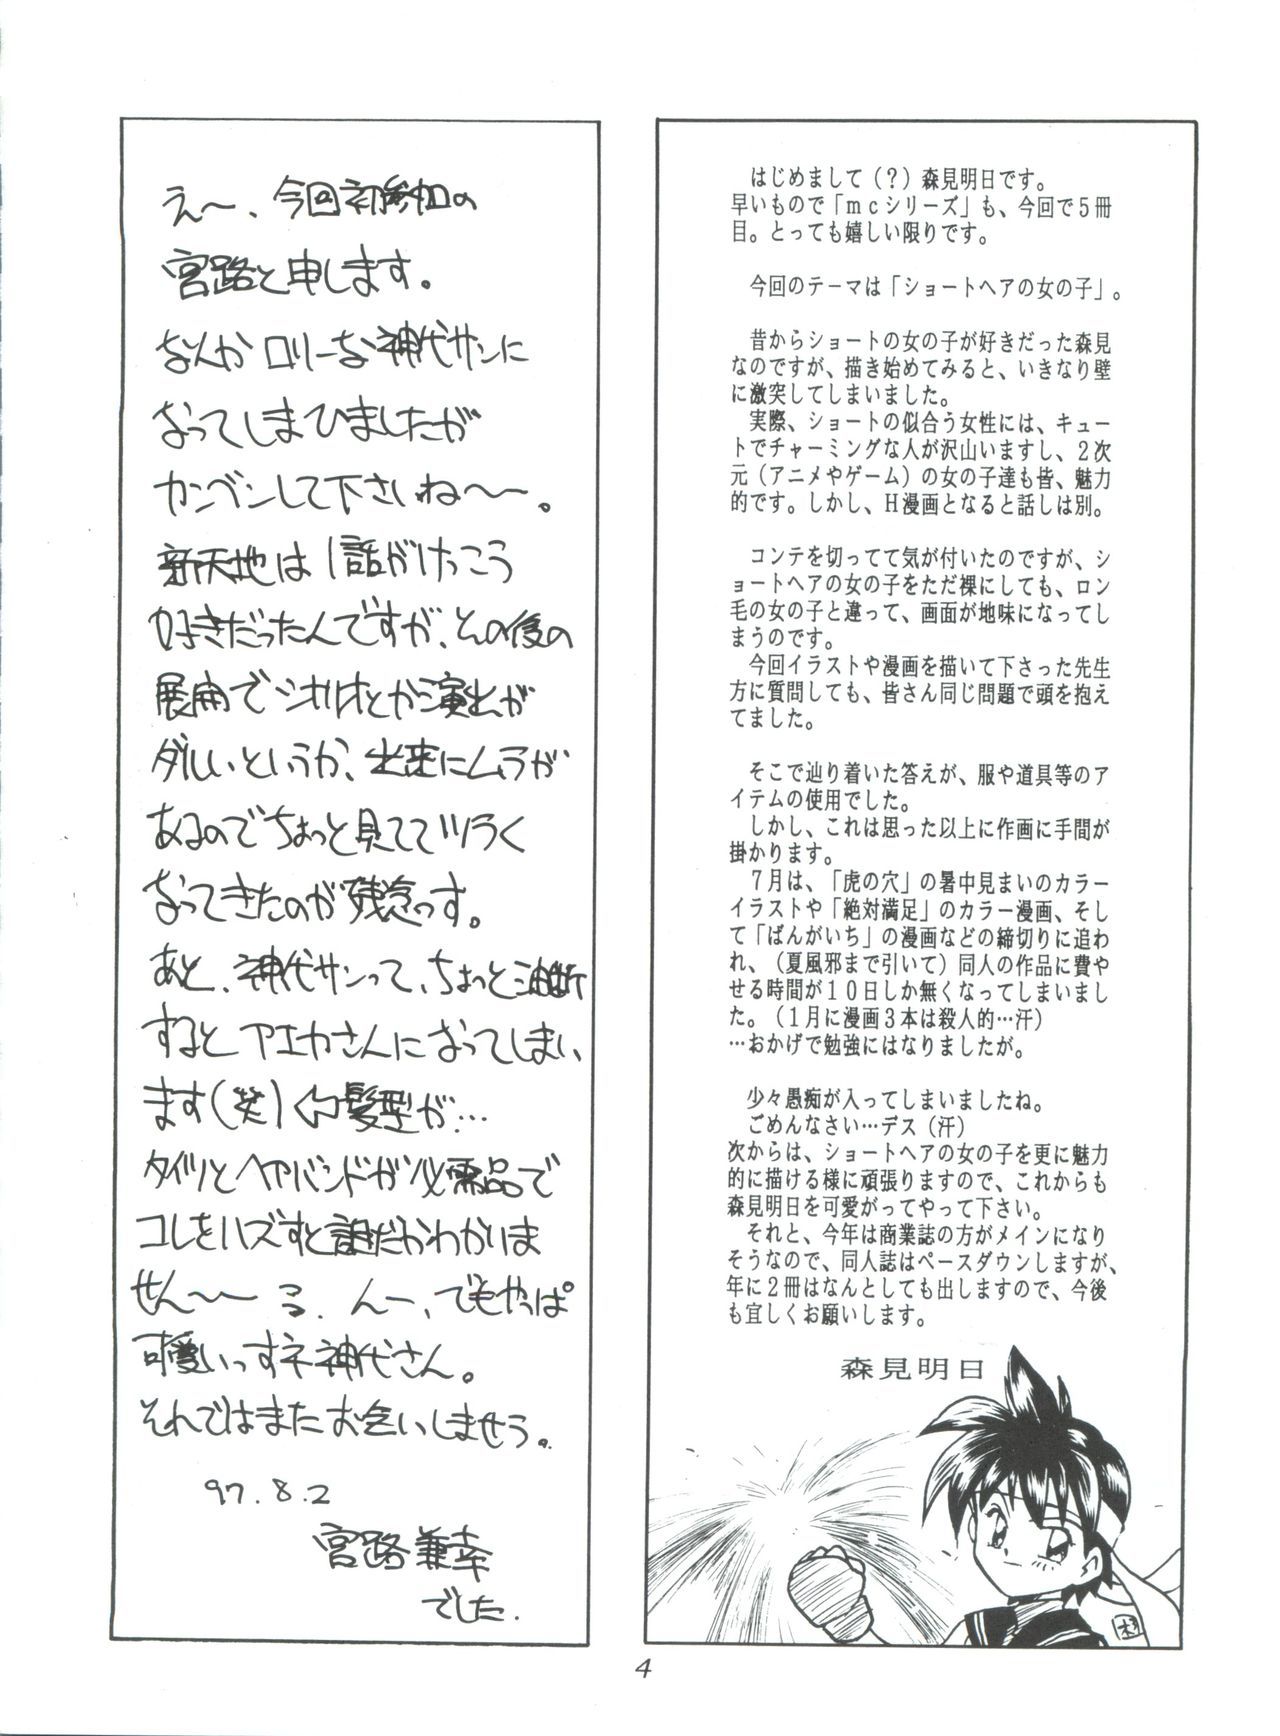 はじめまして（？）森見明日です。
早いもので「ｍｃシリーズ」も、今回で５冊
目。とっても嬉しい限りです。
今回のテーマは「ショートヘアの女の子」。
昔からショートの女の子が好きだった森見
なのですが、描き始めてみると、いきなり壁
に激突してしまいました。
実際、ショートの似合う女性には、キュー
トでチャーミングな人が沢山いますし、２次
元（アニメやゲーム）の女の子達も皆、魅力
的です。しかし、Ｈ漫画となると話しは別。
コンテを切ってて気が付いたのですが、シ
ョートヘアの女の子をただ裸にしても、ロン
毛の女の子と違って、画面が地味になってし
まうのです。
今回イラストや漫画を描いて下さった先生
方に質問しても、皆さん同じ問題で頭を抱え
てました。
そこで辿り着いた答えが、服や道具等のア
イテムの使用でした。
しかし、これは思った以上に作画に手間が
掛かります。
７月は、「虎の穴」の暑中見まいのカラー
イラストや「絶対満足」のカラー漫画、そし
て「ばんがいち」の漫画などの締切りに追わ
れ、（夏風邪まで引いて）同人の作品に費や
せる時間が１０日しか無くなってしまいまし
た。（１月に漫画３本は殺人的…汗）
…おかげで勉強にはなりましたが。
少々愚痴が入ってしまいましたね。
ごめんなさい…デス（汗）
次からは、ショートヘアの女の子を更に魅力
的に描ける様に頑張りますので、これからも
森見明日を可愛がってやって下さい。
それと、今年は商業誌の方がメインになり
そうなので、同人誌はペースダウンしますが、
年に２冊はなんとしても出しますので、今後
も宜しくお願いします。
森見明日
えー、今回初参加の
宮路と申します。
なんかロリーな神代サンに
なってしまひましたが
カンベンして下さいね〜〜。
新天地は1話がけっこう
好きだったんですが、その後の
展開でシオリとか演出が
ダルいというか、出来にムラが
あるのでちょっと見ててツラく
なってきたのが残念っす。
あと、神代サンって、ちょっと油断
するとアエカさんになってしまい
ます(笑)⇦髪型が…
タイツとヘアバンドが必需品で
コレをハズすと誰だかわかりま
せん〜〜 んー、でもやっぱ
可愛いっすネ神代さん。
それではまたお会いしませう。
97.8.2
宮路兼幸
でした.
4